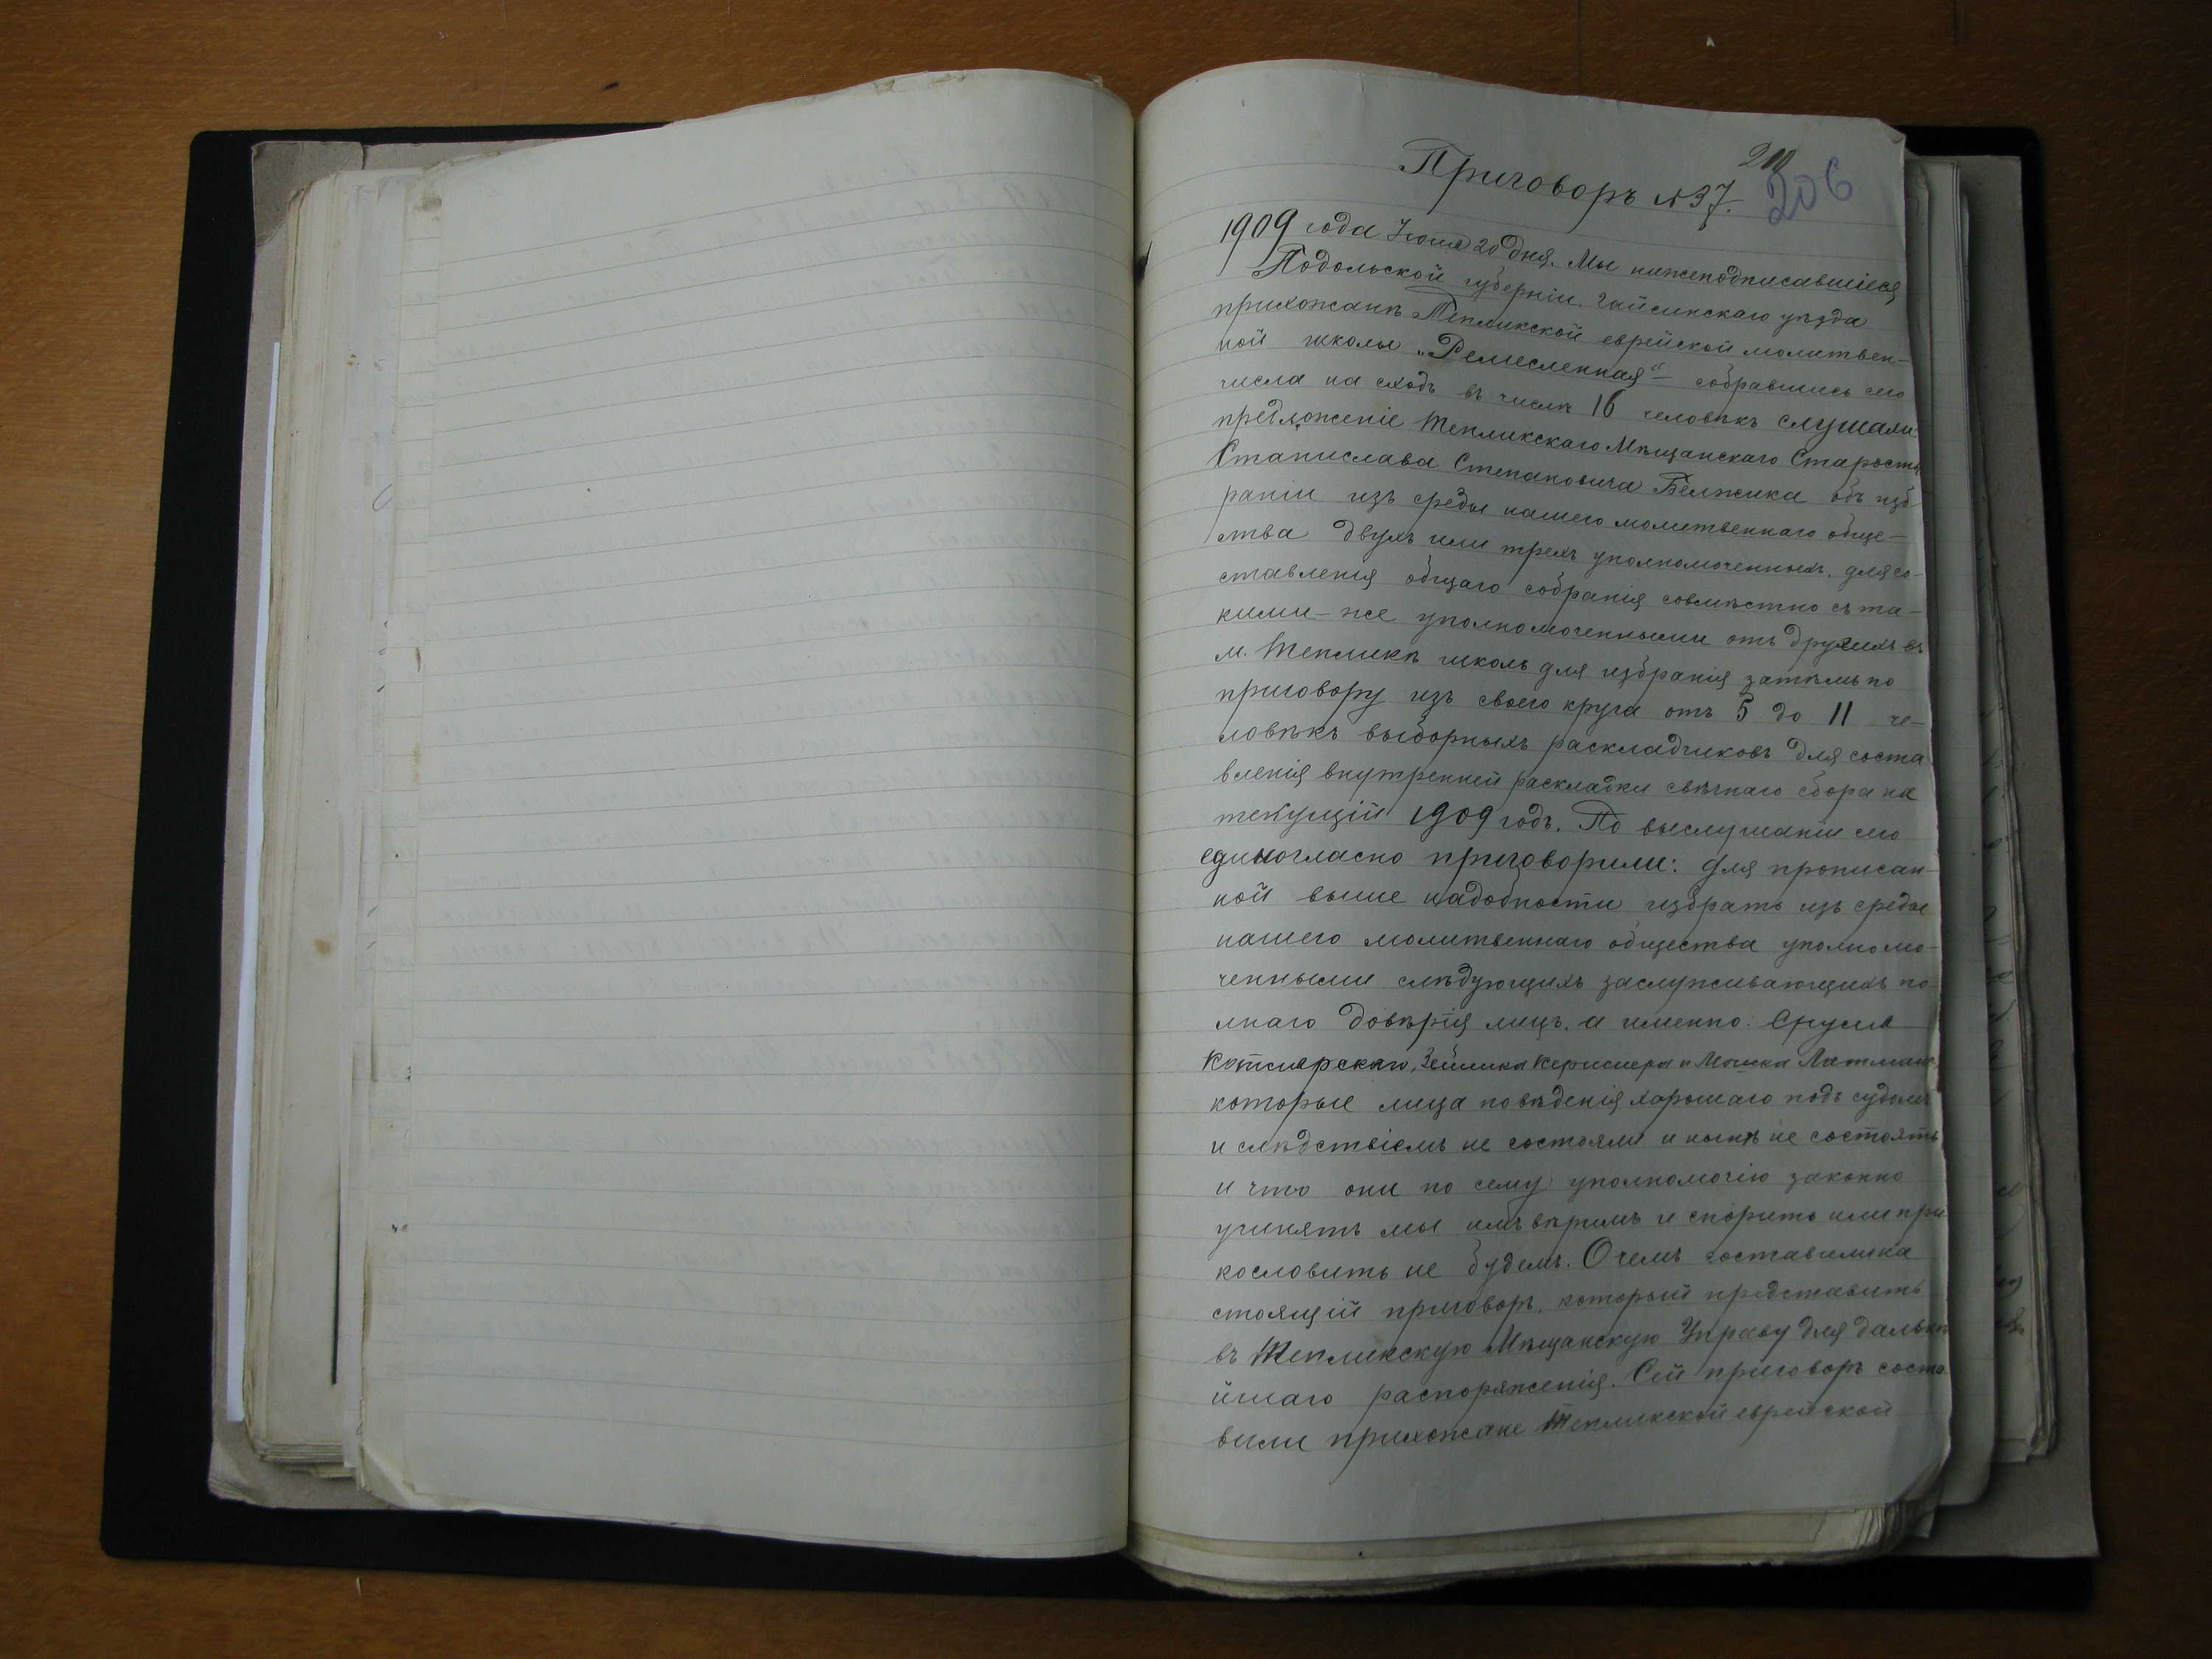 210
206
Приговоръ №37.
1909 года Іюня 20 дня. Мы нижеподписавшіеся
Подольской губерніи, Гайсинскаго уѣзда
прихожанѣ Тепликской еврейской молитвен-
ной школы „Ремесленная“ собравшись сего
числа на сходъ въ числѣ 16 человѣкъ слушали
предложеніе Тепликскаго Мѣщанскаго Старосты
Станислава Степановича объ изб-
раніи изъ среды нашего молитвеннаго обще-
ства двухъ или трехъ уполномоченныхъ, для со-
ставленія общаго собранія совмѣстно съ та-
кими-же уполномоченными отъ другихъ въ
м. Тепликѣ школъ для избранія затѣмъ по
приговору изъ своего круга отъ 5 до 11 че-
ловѣкъ выборныхъ раскладчиковъ для соста
вленія внутренней раскладки свѣчнаго сбора на
текущій 1909 годъ. По выслушаніи сего
единогласно приговорили: для прописан-
ной выше надобности избрать изъ среды
нашего молитвеннаго общества уполномо-
ченными слѣдующихъ заслуживающихъ по-
лнаго довѣрія лицъ, а именно: Сруля
Котлярскаго, Зейлика и Мошка
которые лица поведѣнія харошаго подъ судомъ
и слѣдствіемъ не состояли и нынѣ не состоятъ
и что они по сему уполномочію законно
учинятъ мы имъ вѣримъ и спорить или пре
кословить не будемъ. О чемъ составили на
стоящій приговоръ, который представить
въ Тепликскую Мѣщанскую Управу для дальнѣ
йшаго распоряженія. Сей приговоръ соста
вили прихожане Тепликской еврейской